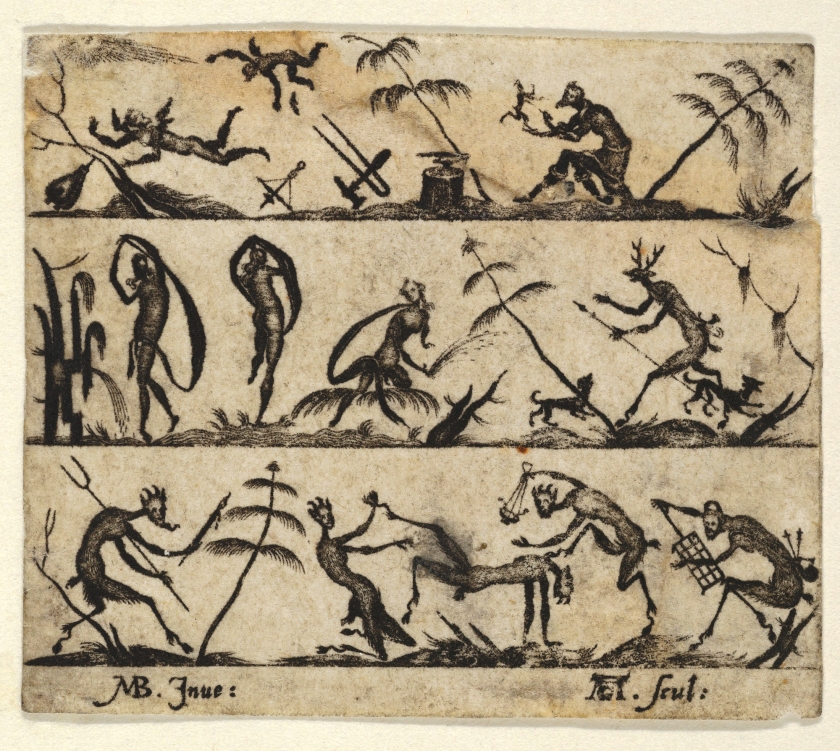 MB. Inue: AH. scul: